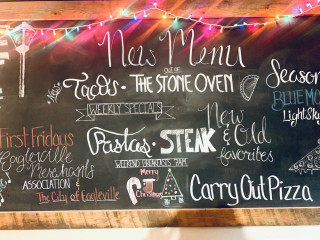 New Menu
OUT OF
Tacos · THE STONE OVEN
WEEKLY SPECIALS
Season
BLUE MO
LightSky
New
& Old
favorites
Pastas · STEAK
WEEKEND
7AM
First Fridays
Cogleville
Merchants
ASSOCIATION &
The City of Cogleville
Merry
Christmas
Carry Out Pizza